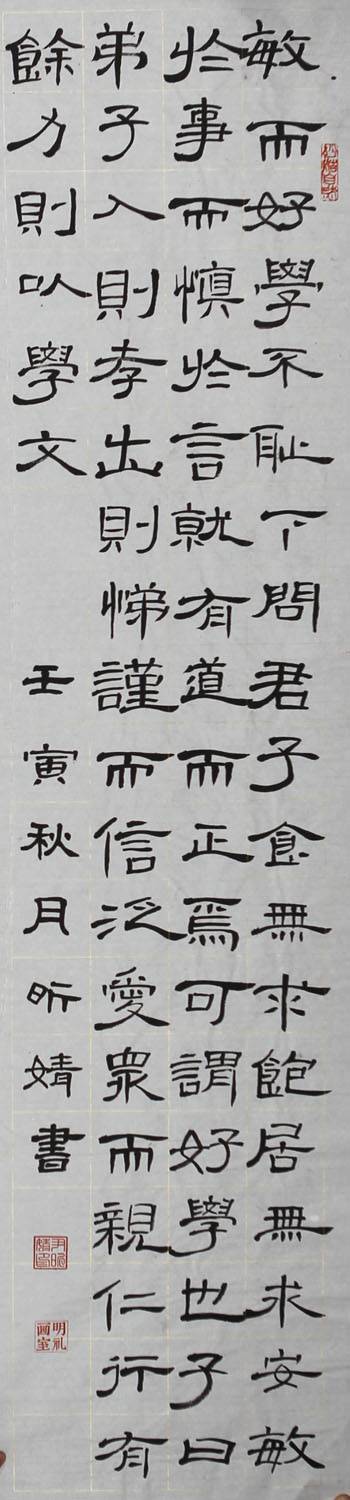 敏而好學不耻下問君子食無求飽居無求安敏
於事而慎於言就有道而正焉可謂好學也子曰
弟子入則孝出則悌謹而信泛愛眾而親仁行有
餘力則以學文
壬寅秋月昕婧書
尹昕婧印
明礼画室